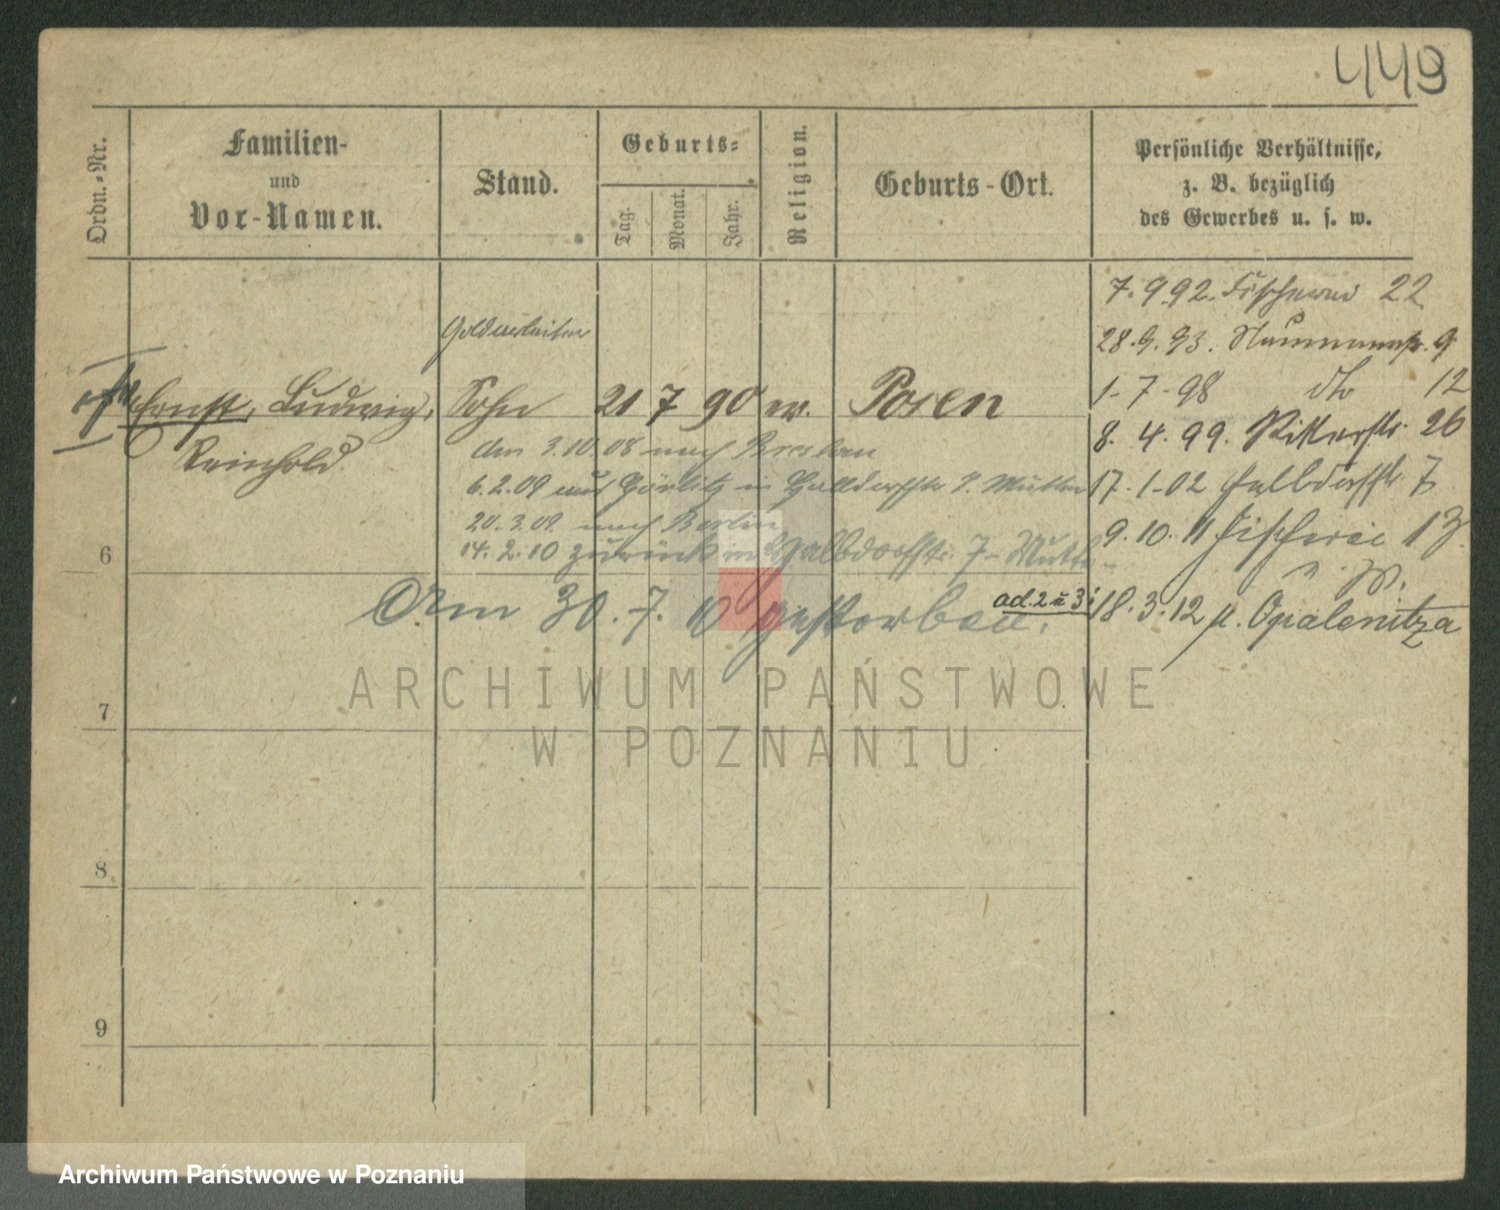 449
Ordn.-Nr.
Familien-
und
Vor-Namen.
Stand.
Geburts-
Tag.
Monat.
Jahr.
Religion.
Geburts-Ort.
Persönliche Verhältnisse,
z. B. bezüglich
des Gewerbes u. s. w.
7.9.92. Fischerei 22
Goldarbeiter
28.9.93. Naumannstr. 9
1-7-98 dto 12
Ernst, Ludwig, Sohn 21 7 90 ev. Posen
Reinhold
8. 4. 99. Ritterstr. 26
den 3.10.08 nach Breslau
6.2.09 aus Görlitz in Halldorfstr 7. Mutter
17.1.02 Halbdorfstr 7
20.3.09 nach Berlin
9.10.11 Fischerei 13
14.2.10 zurück in Halbdorfstr. 7- Mutter
6
Am 30.7.10 gestorben.
ad. 2 u 3:
18.3.12 n. Opalenitza
7
8
9
ARCHIWUM PAŃSTWOWE
W POZNANIU
Archiwum Państwowe w Poznaniu